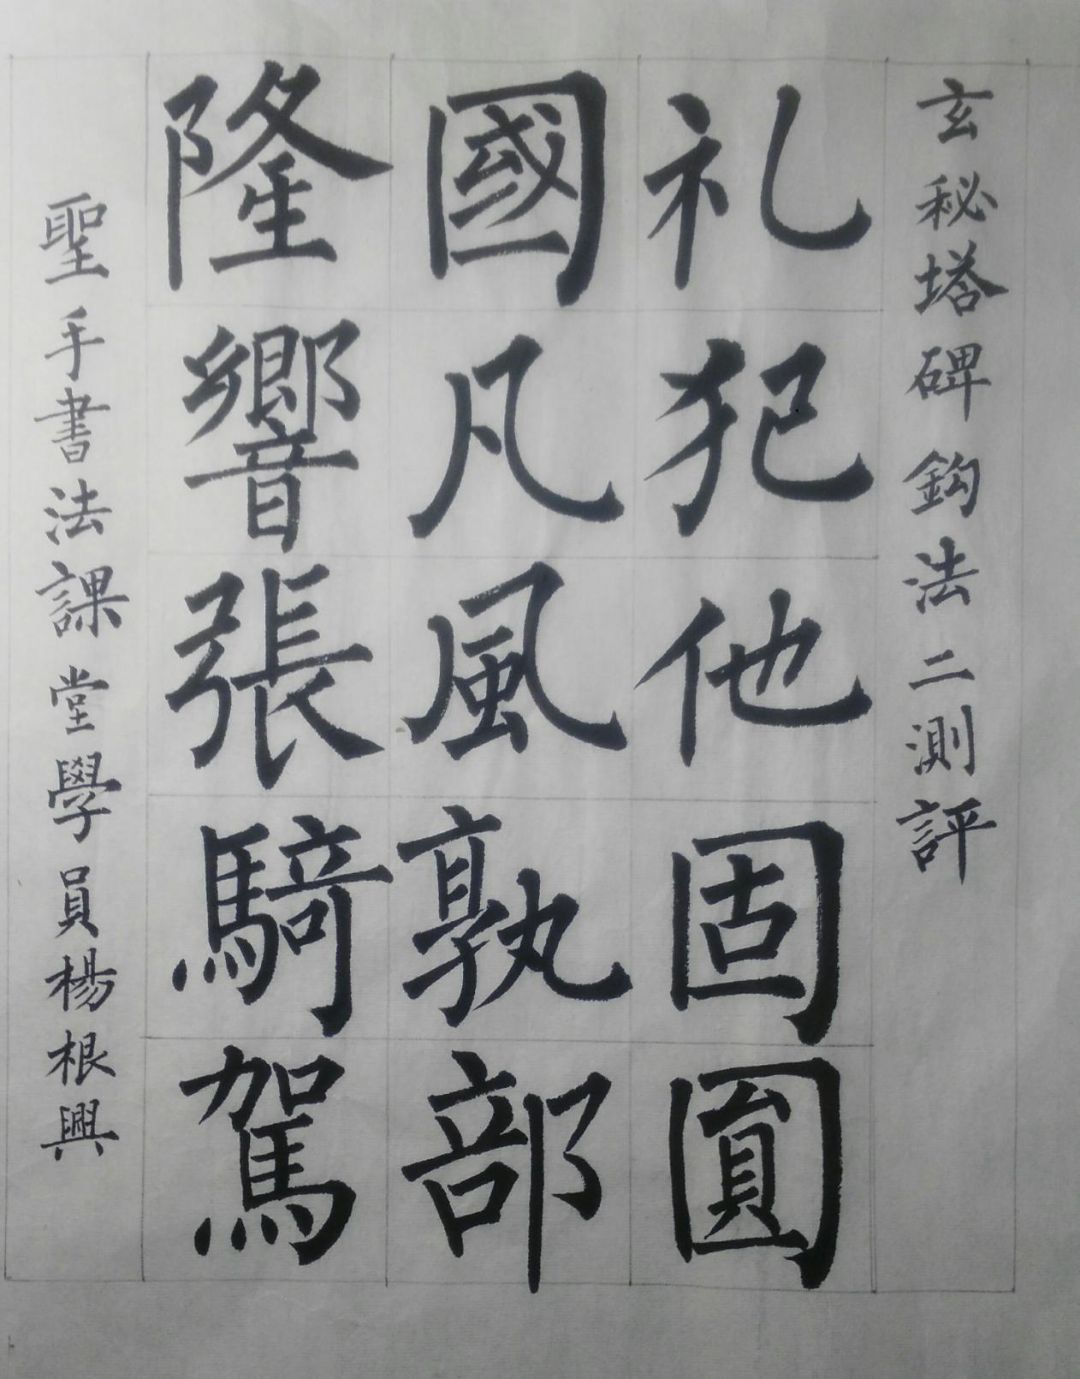 玄秘塔碑鈎法二測評
礼犯他固圓
國凡風孰部
隆響張騎駕
聖手書法課堂學員楊根興